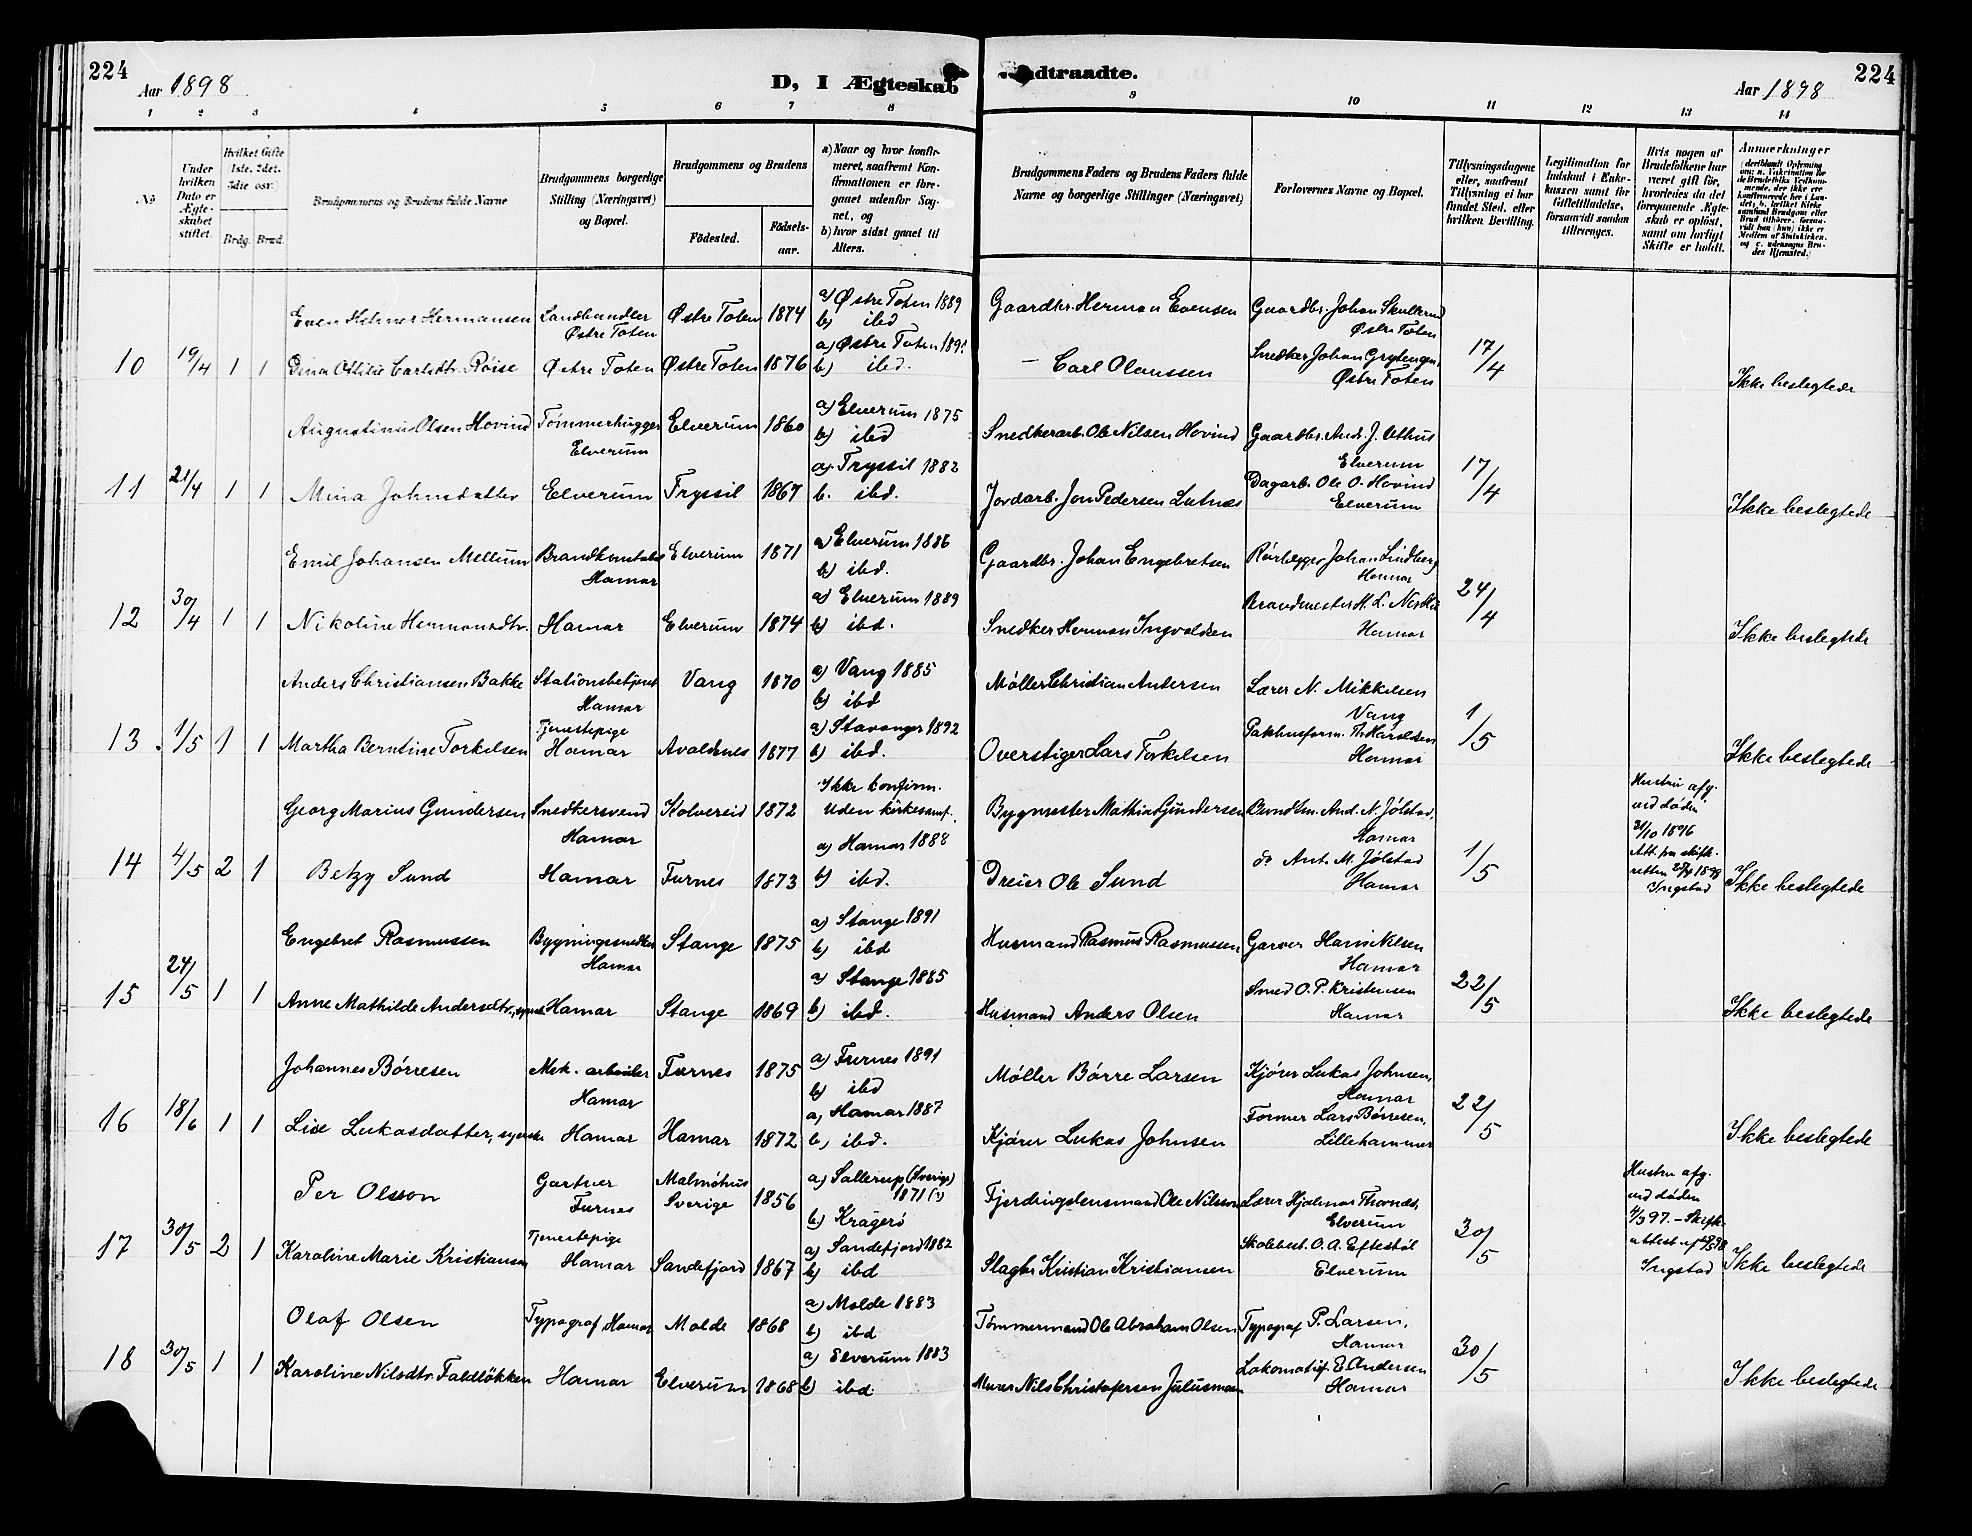 224
Aar 1898
D, I Ægteskab
ndtraadte.
Aar 1898
224
1 2 3 4 5 6 7 8 9 10 11 12 13 14
№
Under hvilken Dato er Ægteskabet stiftet.
Hvilket Gifte 1ste, 2det, 3die osv.
Brdg. Brud.
Brudgommens og Brudens fulde Navne
Brudgommens borgerlige Stilling (Næringsvei) og Bopæl.
Brudgommens og Brudens
Födested.
Födselsaar.
a) Naar og hvor konfirmeret, saafremt Konfirmationen er foregaaet udenfor Sognet, og
b) hvor sidst gaaet til Alters.
Brudgommens Faders og Brudens Faders fulde Navne og borgerlige Stillinger (Næringsvei)
Forlovernes Navne og Bopæl.
Tillysningsdagene eller, saafremt Tillysning ei har fundet Sted, efter hvilken Bevilling.
Legitimation for Indskud i Enkekassen samt for Giftetilladelse, forsaavidt saadan tiltrænges.
Hvis nogen af Brudefolkene har været gift för, hvordenes da det foregaaende Ægteskab er oplöst, samt om lovligt Skifte er holdt.
Anmærkninger
Even Helmer Hermansen Landhandler Østre Toten Østre Toten 1874 a) Østre Toten 1889 b) ibd Gaardbr. Herman Evensen Gaardbr. Johan Østre Toten
10 19/4 1 1 Dina Carlsdtr. Röise Østre Toten Østre Toten 1876 a) Østre Toten b) ibd. — Carl Olaussen Snedker Johan Østre Toten 17/4 Ikke beslegtede
Augustinus Olsen Hovind Tømmerhugger Elverum Elverum 1860 a) Elverum 1875 b) ibid Snedkerarb. Ole Nilsen Hovind Gaardbr. And. J. Uthus Elverum
11 21/4 1 1 Mina Johnsdatter Elverum Tryssil 1867 a. Tryssil 1882 b. ibd. Jordarb. Jon Pedersen Lutnæs Dagarb. Ole O. Hovind Elverum 17/4 Ikke beslegtede
Emil Johansen Mellum Brandkonstabel Hamar Elverum 1871 a) Elverum 1886 b) ibd. Gaardbr. Johan Engebretsen Rørlægger Johan Lindberg Hamar
12 30/4 1 1 Nikoline Hermansdtr. Hamar Elverum 1874 a) Elverum 1889 b) ibd. Snedker Herman Ingvaldsen Brandmester H. L. Hamar 24/4 Ikke beslegtede
Anders Christiansen Bakke Stationsbetjent Hamar Vang 1870 a) Vang 1885 b) ibd Møller Christian Andersen Lærer N. Mikkelsen Vang
13. 1/5 1 1 Martha Berntine Torkelsen Tjenestepige Hamar Avaldsnes 1877 a) Stavanger 1892 b) ibd. Overstiger Lars Torkelsen Pakhusform. Th. Haraldsen Hamar 1/5 Ikke beslegtede
Georg Marius Gundersen Snedkersvend Hamar Kolvereid 1872 Ikke konfirm. Uden kirkesamf. Bygmester Mathias Gundersen Bundtm. And. N. Jølstad, Hamar Hustru afg. ved døden 31/10 1896
14 4/5 2 1 Betzy Sund Hamar Furnes 1873 a) Hamar 1888 b) ibd. Dreier Ole Sund do Ant. M. Jølstad Hamar 1/5 Att. fra skifteretten Ingstad Ikke beslegtede
Engebret Rasmussen Bygningssnedker Hamar Stange 1875 a) Stange 1891 b) ibd Husmand Rasmus Rasmussen Garver Hans Nilsen Hamar
15 24/5 1 1 Anne Mathilde Andersdtr., Hamar Stange 1869 a) Stange 1885 b) ibd. Husmand Anders Olsen Smed O. P. Kristensen Hamar 22/5 Ikke beslegtede
Johannes Børresen Mek. arbeider Hamar Furnes 1875 a) Furnes 1891 b) ibd Møller Børre Larsen Kjører Lukas Johnsen, Hamar
16 18/6 1 1 Lise Lukasdatter, Hamar Hamar 1872 a, Hamar 1887 b, ibd. Kjører Lukas Johnsen Former Lars Børresen, Lillehammer 22/5 Ikke beslegtede
Per Olsson Gartner Furnes Malmøhus Sverige 1856 a) Sallerup (Sverige) 1871 (?) b) Kragerö Fjerdingslensmand Ole Nilsson Lærer Hjalmar Elverum Hustru afg. ved døden 4/3 97. — Skifteattest af Ingstad
17 30/5 2 1 Karoline Marie Kristiansen Tjenestepige Hamar Sandefjord 1867 a) Sandefjord 1882 b) ibd Slagter Kristian Kristiansen Skolebest. O. A. Eftestøl Elverum 30/5 Ikke beslegtede
Olaf Olsen Typograf Hamar Molde 1868 a) Molde 1883 b) ibd Tømmermand Ole Abraham Olsen Typograf P. Larsen, Hamar
18 30/5 1 1 Karoline Nilsdtr. Faldløkken Hamar Elverum 1868 a) Elverum 1883 b) ibd. Murer Nils Christofersen Julusmoen Lokomotivf. E. Andersen Hamar 30/5 Ikke beslegtede